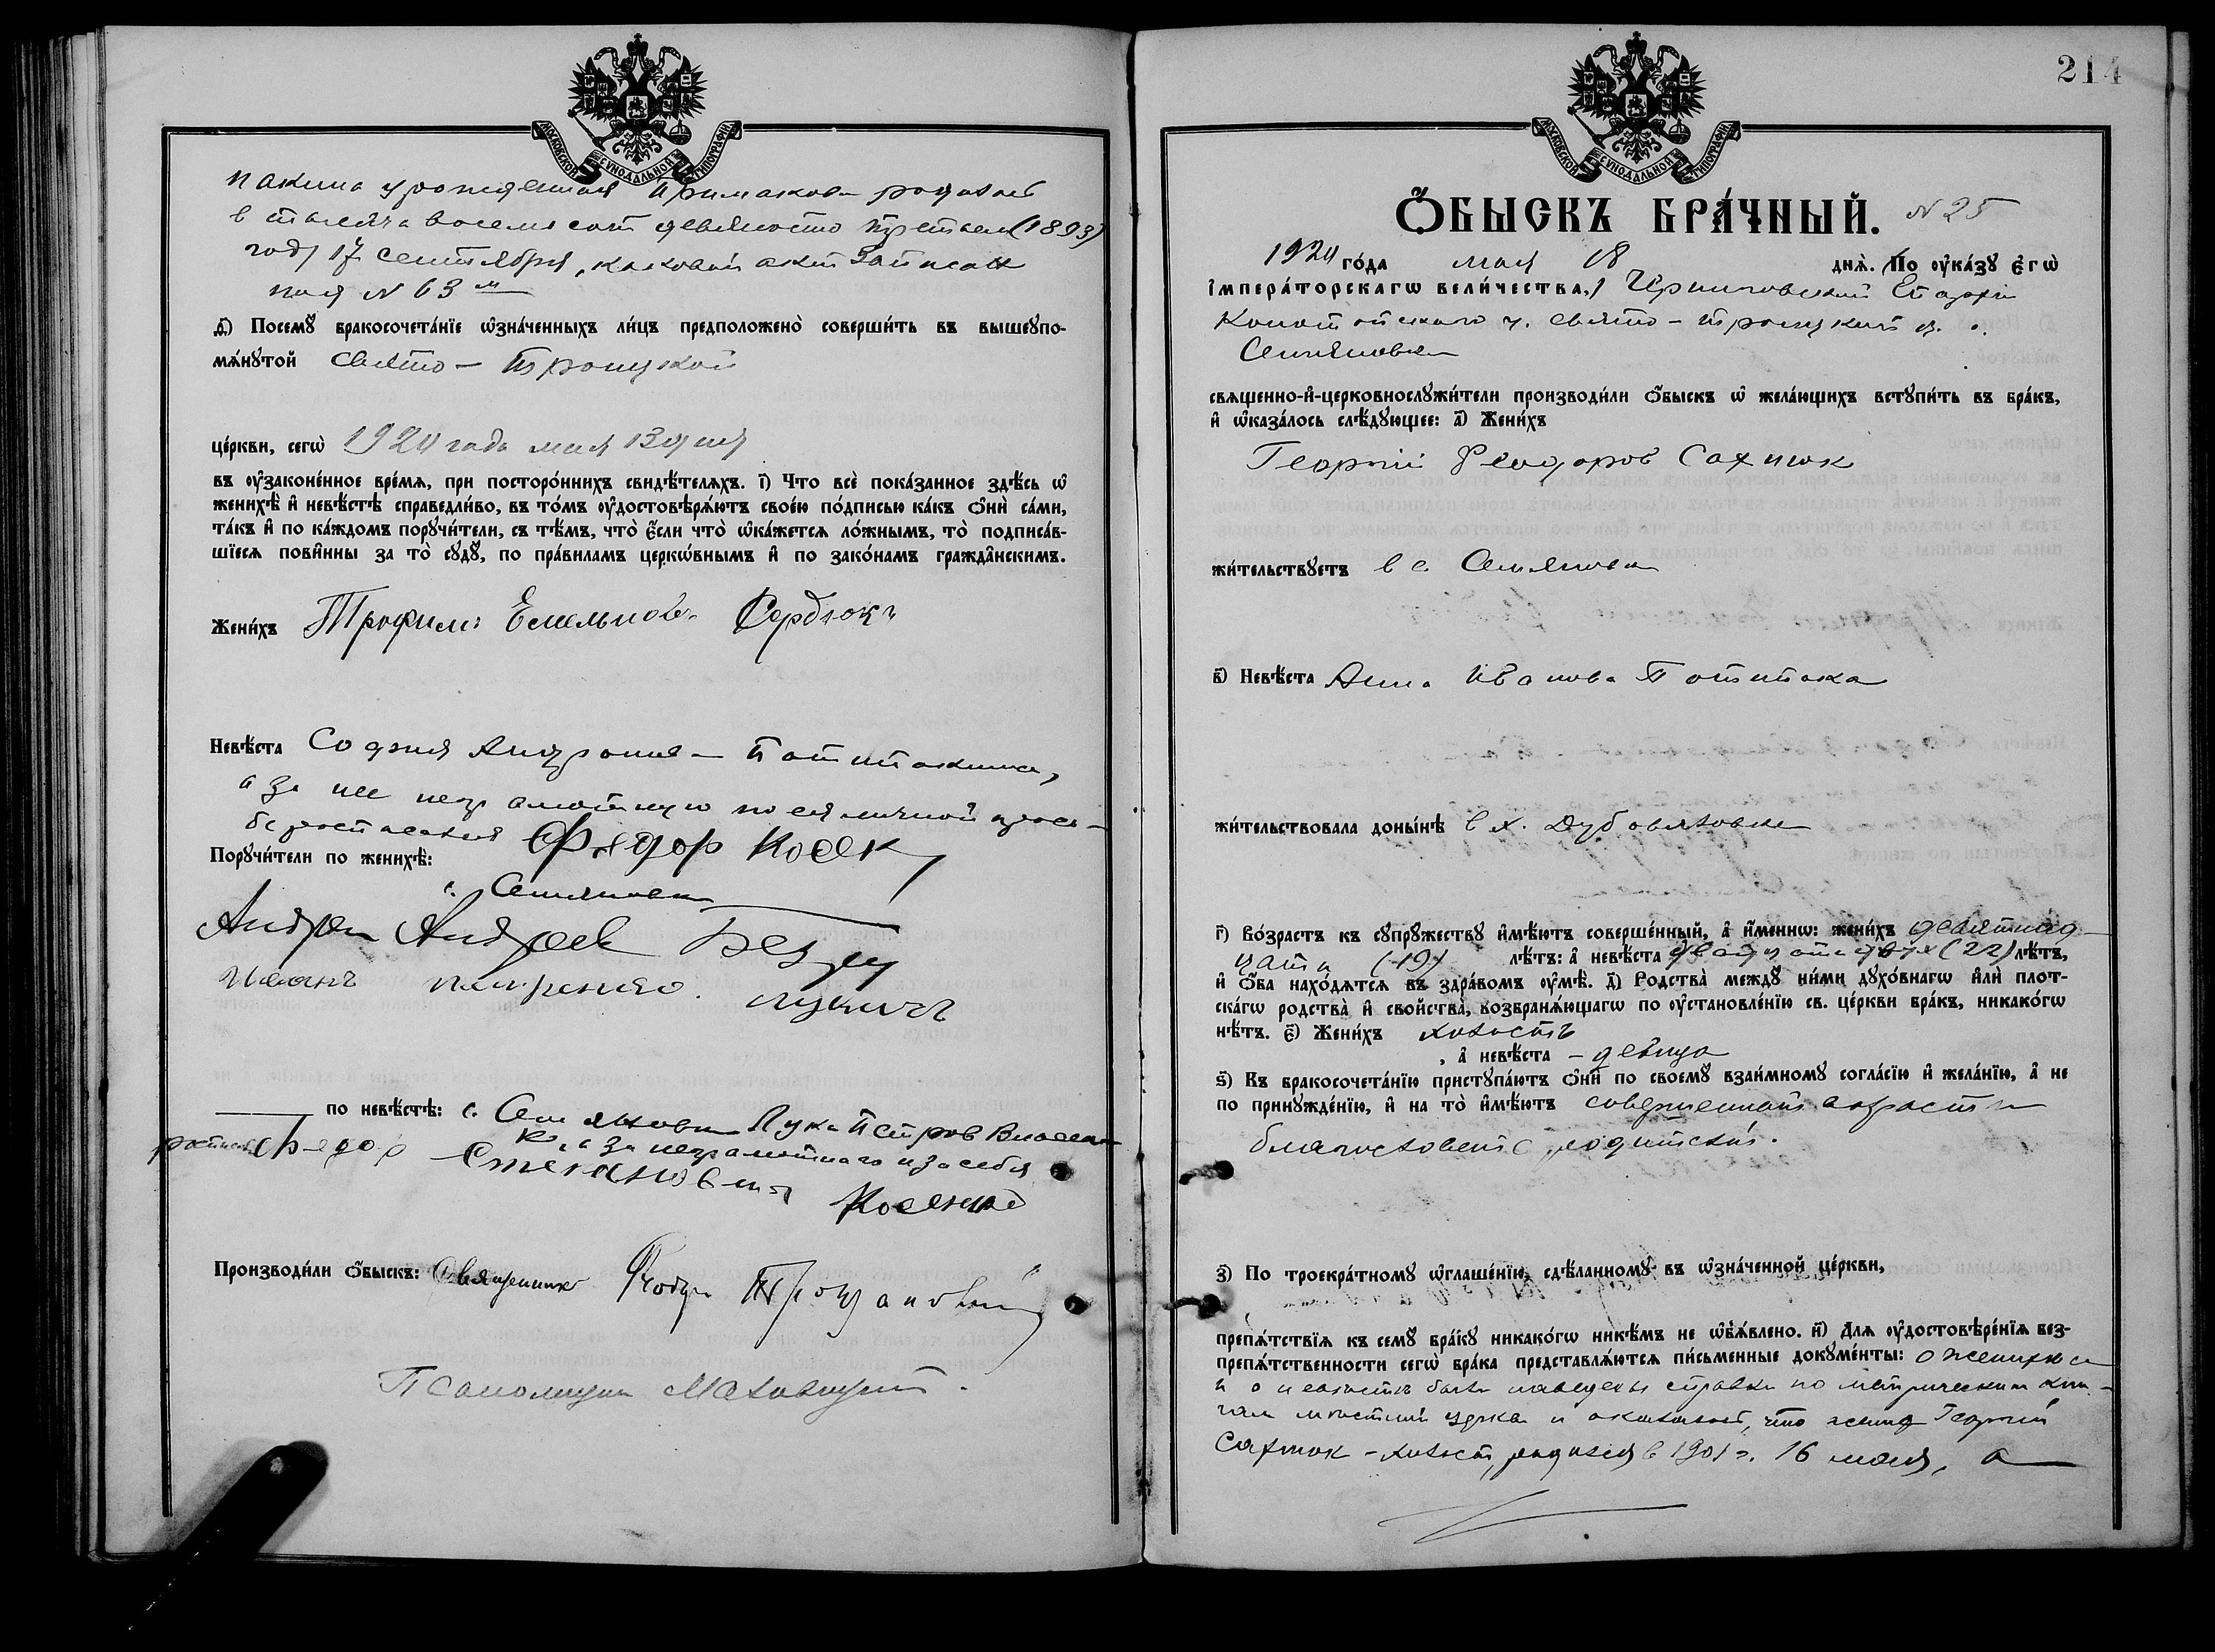 МОСКОВСКОЙ СѴНОДАЛЬНОЙ ТИПОГРАФІИ
пакина урожденная Примакова родилась
в тысяча восемьсот девяносто третьем (1893)
году 17 сентября, каковый акт записан
под № 63 м
ѳ҃) Посемꙋ бракосочета́нїе ѡ҆зна́ченныхъ ли́цъ предположено̀ соверши́ть въ вышеꙋпо-
мѧ́нꙋтой Свято - Троицкой
це́ркви, сегѡ̀ 1920 года мая 13 дня
въ ᲂу҆зако́ненное вре́мѧ, при посторо́ннихъ свидѣ́телѧхъ. і҃) Что всѐ пока́занное здѣ́сь ѡ҆
женихѣ̀ и҆ невѣ́стѣ справедли́во, въ то́мъ ᲂу҆достовѣрѧ́ютъ свое́ю по́дписью ка́къ ѻ҆нѝ са́ми,
та́къ и҆ по ка́ждомъ порꙋчи́тели, съ тѣ́мъ, что̀ є҆́сли что̀ ѡ҆ка́жетсѧ ло́жнымъ, то̀ подписа́в-
шїесѧ пови́нны за то̀ сꙋдꙋ̀, по пра́виламъ церко́внымъ и҆ по зако́намъ гражда́нскимъ.
Жени́хъ Трофимъ Емельяновъ Сердюкъ
Невѣ́ста София Андронова - Потапакина,
а за нее неграмотную по ея личной прось-
бе расписался Фядор Косяк
Порꙋчи́тели по женихѣ̀:
с. Семяновки
Андреи Андреев
Иванъ
по невѣ́стѣ: с. Семяновки Лука Петров Власен-
ко, а за неграмотнаго и за себя
Фядор
Производи́ли ѻ҆́быскъ: Священникъ
Псаломщик
214
МОСКОВСКОЙ СѴНОДАЛЬНОЙ ТИПОГРАФІИ
Ѻ҆́БЫСКЪ БРА́ЧНЫЙ. № 25
1920 го́да мая 18 днѧ̀. (По ᲂу҆ка́зꙋ є҆гѡ̀
і҆мпера́торскагѡ вели́чества,) Черниговской Епархии
Конотопского у. Свято - Троицкой ц. с.
Семяновки
свѧще́нно-и҆-церковнослꙋжи́тели производи́ли ѻ҆́быскъ ѡ҆ жела́ющихъ встꙋпи́ть въ бра́къ,
и҆ ѡ҆каза́лось слѣ́дꙋющее: а҃) Жени́хъ
Георгий Феодоров Сахнюк
жи́тельствꙋетъ в с. Семяновки
в҃) Невѣ́ста Анна Иванова Потапака
жи́тельствовала доны́нѣ в х. Дубовязовке
г҃) Во́зрастъ къ сꙋпрꙋ́жествꙋ и҆мѣ́ютъ соверше́нный, а҆ и҆́менно: жени́хъ девятнад-
цати (19) лѣ́тъ: а҆ невѣ́ста двадцати двух (22) лѣ́тъ,
и҆ ѻ҆́ба нахо́дѧтсѧ въ здра́вомъ ᲂу҆мѣ̀. д҃) Родства̀ междꙋ̀ ни́ми дꙋхо́внагѡ и҆лѝ плот-
ска́гѡ родства̀ и҆ свойства̀, возбранѧ́ющагѡ по ᲂу҆становле́нїю св. це́ркви бра́къ, никако́гѡ
нѣ́тъ. є҃) Жени́хъ холостъ
, а҆ невѣ́ста - девица
ѕ҃) Къ бракосочета́нїю пристꙋпа́ютъ ѻ҆нѝ по своемꙋ̀ взаи́мномꙋ согла́сїю и҆ жела́нїю, а҆ не
по принꙋжде́нїю, и҆ на то̀ и҆мѣ́ютъ совершенный возраст и
благословение родителей.
з҃) По троекра́тномꙋ ѡ҆глаше́нїю, сдѣ́ланномꙋ въ ѡ҆зна́ченной це́ркви,
препѧ́тствїѧ къ семꙋ̀ бра́кꙋ никако́гѡ никѣ́мъ не ѡ҆б̾ѧ́влено. и҃) Длѧ ᲂу҆достовѣре́нїѧ без-
препѧ́тственности сегѡ̀ бра́ка представлѧ́ютсѧ пи́сьменные докꙋме́нты: о женихе
и о невесте были наведены справки по метрическим кни-
гам местной церкви и оказалось, что жених Георгий
Сахнюк - холост, родился в 1901 г. 16 мая, а